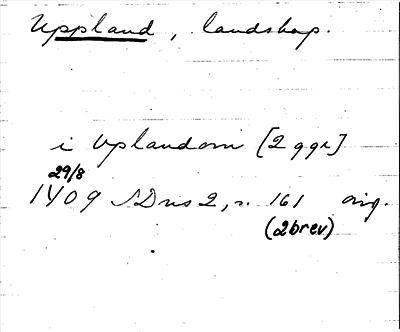 Uppland, landskap.
i Uplandom [2 ggr]
29/8
1409 SDns 2, s. 161 orig.
(2brev)